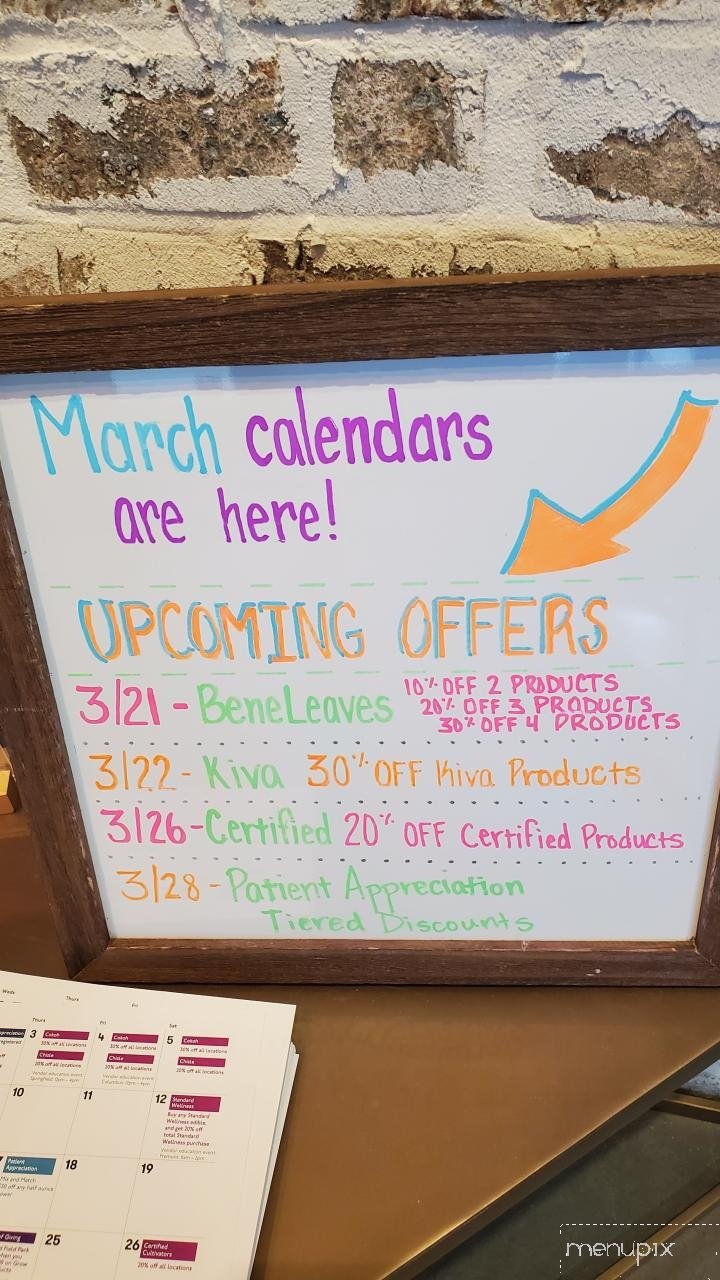 March calendars
are here!
UPCOMING OFFERS
3/21 - BeneLeaves 10% OFF 2 PRODUCTS
20% OFF 3 PRODUCTS
30% OFF 4 PRODUCTS
3/22 - Kiva 30% OFF Kiva Products
3/26 - Certified 20% OFF Certified Products
3/28 - Patient Appreciation
Tiered Discounts
Weds Thurs Fri Sat
Thurs
3 Cokoh
30% off all locations
Chiste
20% off all locations
Vendor education event
Fri
4 Cokoh
30% off all locations
Chiste
20% off all locations
Vendor education event
Sat
5 Cokoh
30% off all locations
Chiste
20% off all locations
10 11 12 Standard
Wellness
Buy any Standard
Wellness edible,
and get 20% off
total Standard
Wellness purchase
Vendor education event
Patient
Appreciation
Mix and Match
off any half ounce
18 19
of Giving
Field Pack
25 26 Certified
Cultivators
20% off all locations
menupix